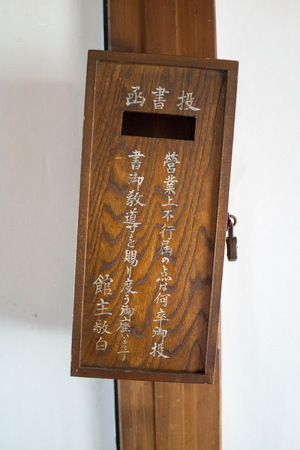 投書函
營業上不行届の点は何卒御投
書御教導を賜り度う御座います
館主敬白